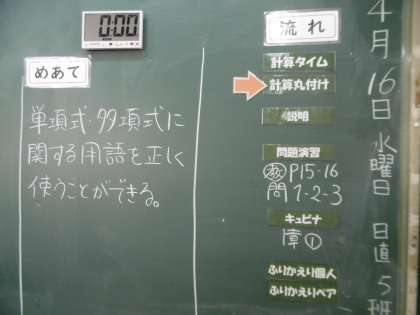 0:00
めあて
単項式・多項式に
関する用語を正しく
使うことができる。
流れ
計算タイム
計算丸付け
説明
問題演習
教P15-16
問1-2-3
キュビナ
障①
ふりかえり個人
ふりかえりペア
4月16日 水曜日 日直 5班